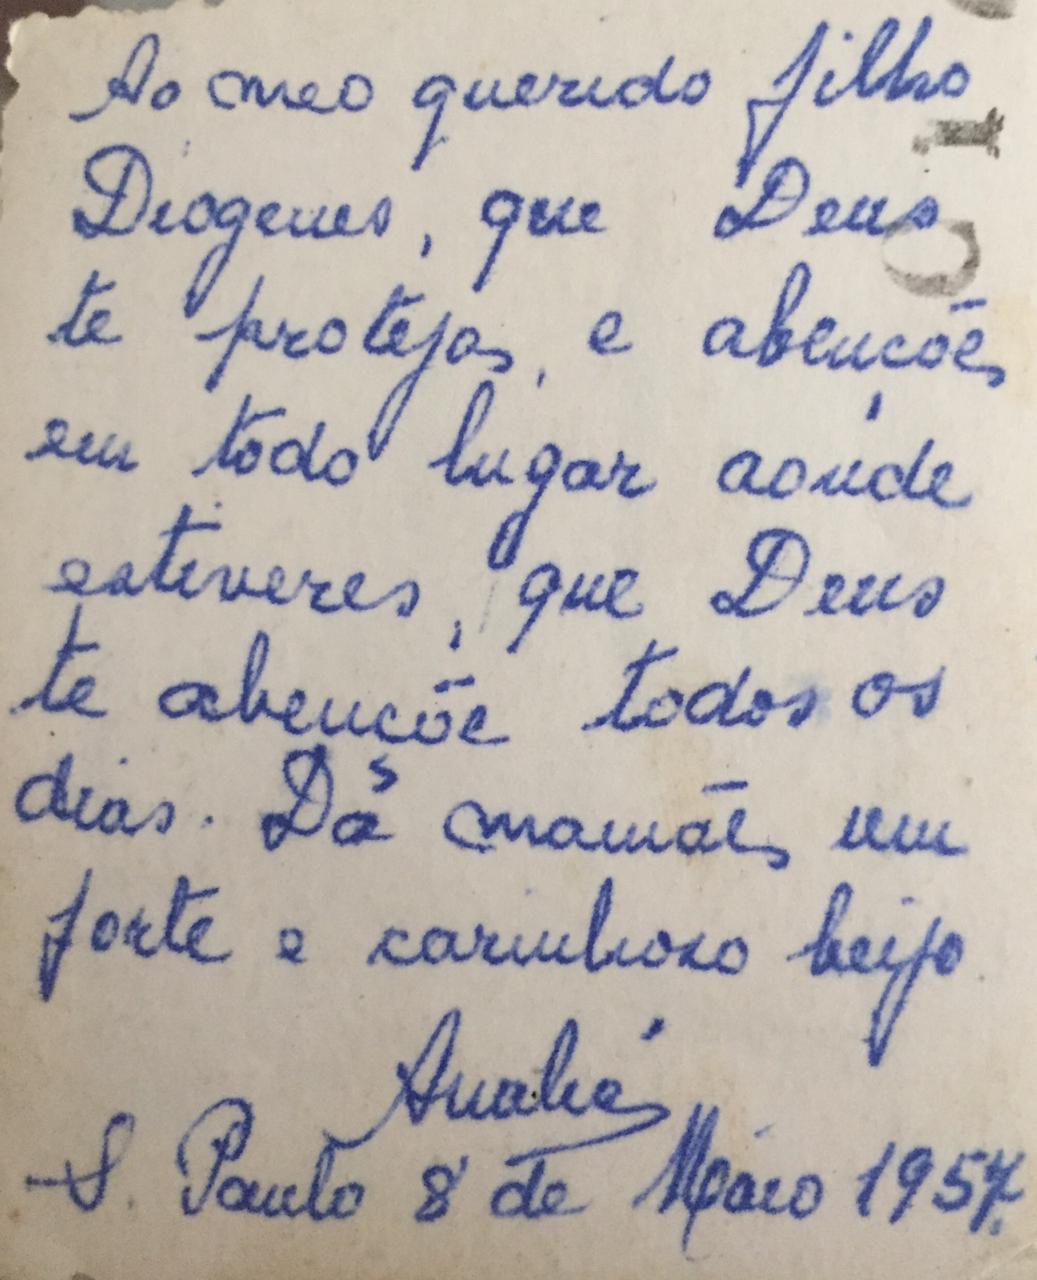 Ao meo querido filho
Diogenes, que Deus
te proteja, e abençõe,
em todo lugar aonde
estiveres, que Deus
te abençõe todos os
dias. Dá mamãe, um
forte e carinhoso beijo
Anália
S. Paulo 8 de Maio 1957.